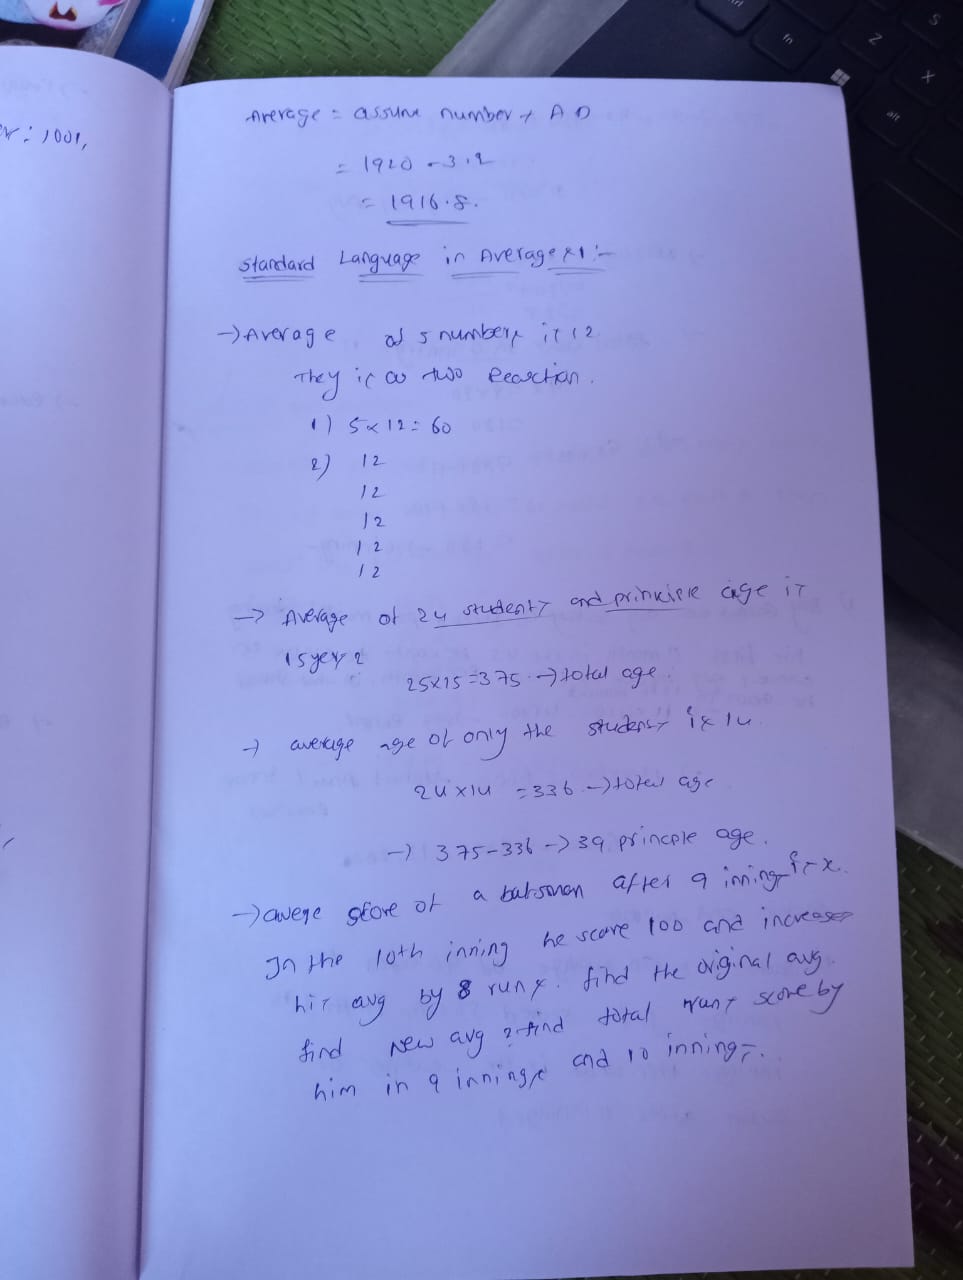 er: 1001,
Average = assume number + A D
= 1920 - 3.2
= 1916.8.
Standard Language in Average :-
→ Average of 5 numbers is 12
They is as two Reaction.
1) 5x12 = 60
2) 12
12
12
12
12
→ Average of 24 students and age is
15
25x15 = 375 → total age.
→ average age of only the students is 14
24x14 = 336 → total age
→ 375-336 → 39 principle age.
→ score of a batsman after 9 innings is x.
In the 10th inning he score 100 and increases
his avg by 8 runs. find the original avg
find new avg ? find total runs score by
him in 9 innings and 10 innings.
fn
Z
S
X
alt